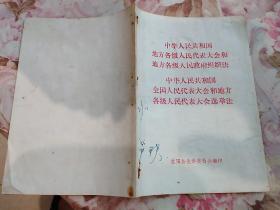 中华人民共和国
地方各级人民代表大会和
地方各级人民政府组织法
中华人民共和国
全国人民代表大会和地方
各级人民代表大会选举法